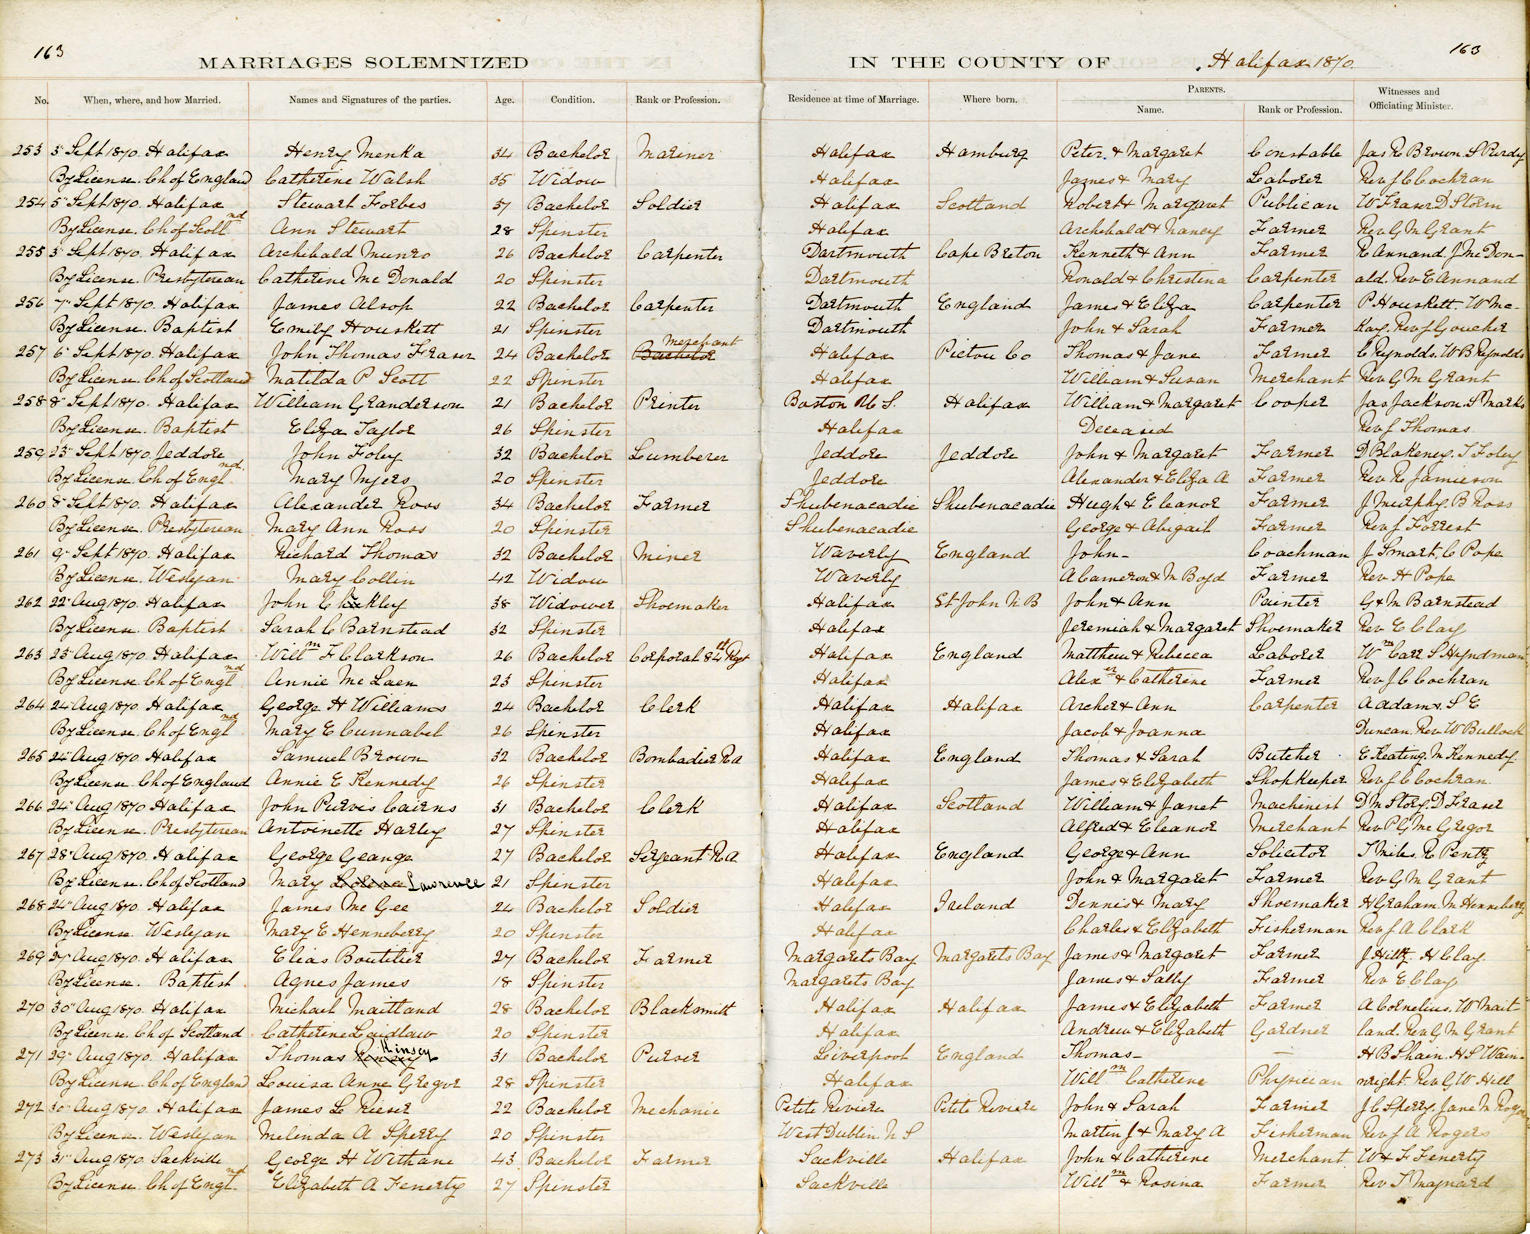 163
163
MARRIAGES SOLEMNIZED IN THE COUNTY OF Halifax 1870.
No. When, where, and how Married. Names and Signatures of the parties. No. Age. Condition. Rank or Profession. Residence at time of Marriage. Where born. PARENTS. Name. Rank or Profession. Witnesses and Officiating Minister.
253 3" Sept 1870. Halifax Henry Menka 34 Bachelor Mariner Halifax Hamburg Peter & Margaret Constable Jas R Brown. S Purdy
By License. Ch of England Catherine Walsh 35 Widow Halifax James & Mary Laborer Rev J C Cochran
254 5" Sept 1870. Halifax Stewart Forbes 37 Bachelor Soldier Halifax Scotland Robert & Margaret Publican W Fraser D Storm
By License. Ch of Scotlnd Ann Stewart 28 Spinster Halifax Archibald & Nancy Farmer Rev G M Grant
255 3" Sept 1870. Halifax Archibald Munro 26 Bachelor Carpenter Dartmouth Cape Breton Kenneth & Ann Farmer R Annand. J McDon-
By License. Presbyterean Catherine Mc Donald 20 Spinster Dartmouth Ronald & Christina Carpenter ald. Rev E Annand
256 7" Sept 1870. Halifax James Alsop 22 Bachelor Carpenter Dartmouth England James & Eliza Carpenter P Houskett. W Mc-
By License. Baptist Emily Houskett 21 Spinster Dartmouth John & Sarah Farmer Kay. Rev J Goucher
257 6" Sept 1870. Halifax John Thomas Fraser 24 Bachelor Bachelor merchant Halifax Pictou Co Thomas & Jane Farmer C Reynolds. W B Reynolds
By License. Ch of Scotland Matilda P Scott 22 Spinster Halifax William & Susan Merchant Rev G M Grant
258 8" Sept 1870. Halifax William Granderson 21 Bachelor Printer Boston U S. Halifax William & Margaret Cooper Jas Jackson. S Marks
By License. Baptist Eliza Taylor 26 Spinster Halifax Deceased Rev J Thomas
259 23" Sept 1870. Jeddore John Foley 32 Bachelor Lumberer Jeddore Jeddore John & Margaret Farmer D Blakeney. T Foley
By License. Ch of Englnd. Mary Myers 20 Spinster Jeddore Alexander & Eliza A Farmer Rev R Jamieson
260 8" Sept 1870. Halifax Alexander Ross 34 Bachelor Farmer Shubenacadie Shubenacadie Hugh & Eleanor Farmer J Murphy. B Ross
By License. Presbyterean Mary Ann Ross 20 Spinster Shubenacadie George & Abigail Farmer Rev J Forrest
261 9" Sept 1870. Halifax Richard Thomas 32 Bachelor Miner Waverly England John - Coachman J Smart. C Pope
By License. Wesleyan Mary Collin 42 Widow Waverly A Cameron & M Boyd Farmer Rev H Pope
262 22" Aug 1870. Halifax John 38 Widower Shoemaker Halifax St John N B John & Ann Painter G & M Barnstead
By License. Baptist Sarah C Barnstead 32 Spinster Halifax Jeremiah & Margaret Shoemaker Rev E Clay
263 23" Aug 1870. Halifax Willm F Clarkson 26 Bachelor Corporal 84th Regt Halifax England Matthew & Rebecca Laborer Wm Carr. S Hyndman
By License. Ch of Englnd Annie Mc Laen 23 Spinster Halifax Alexer & Catherine Farmer Rev J C Cochran
264 24" Aug 1870. Halifax George H Williams 24 Bachelor Clerk Halifax Halifax Archer & Ann Carpenter A Adams. S E
By License. Ch of Englnd Mary E Cunnabel 26 Spinster Halifax Jacob & Joanna Duncan. Rev W Bullock
265 24" Aug 1870. Halifax Samuel Brown 32 Bachelor Bombadier R A Halifax England Thomas & Sarah Butcher E Keating. M Kennedy.
By License. Ch of England Annie E Kennedy 26 Spinster Halifax James & Elizabeth Shop Keeper Rev J C Cochran.
266 24" Aug 1870. Halifax John Purvis Cairns 31 Bachelor Clerk Halifax Scotland William & Janet Machinist D M Story. D Fraser
By License. Presbyterean Antoinette Harley 27 Spinster Halifax Alfred & Eleanor Merchant Rev P G Mc Gregor
267 28" Aug 1870. Halifax George Geange 27 Bachelor Sergeant R A Halifax England George & Ann Solicitor T Miles. R Pentz
By License. Ch of Scotland Mary Lawrence 21 Spinster Halifax John & Margaret Farmer Rev G M Grant
268 24" Aug 1870. Halifax James Mc Gee 24 Bachelor Soldier Halifax Ireland Dennis & Mary Shoemaker H Graham. M Henneberry
By License. Wesleyan Mary E Henneberry 20 Spinster Halifax Charles & Elizabeth Fisherman Rev J A Clark
269 27" Aug 1870. Halifax Elias Boutilier 27 Bachelor Farmer Margarets Bay Margarets Bay James & Margaret Farmer J Hiltz. H Clay
By License. Baptist Agnes James 18 Spinster Margarets Bay James & Sally Farmer Rev E Clay
270 30" Aug 1870. Halifax Michael Maitland 28 Bachelor Blacksmith Halifax Halifax James & Elizabeth Farmer A Cornelius. W Mait-
By License. Ch of Scotland Catherine Laidlaw 20 Spinster Halifax Andrew & Elizabeth Gardner land. Rev G M Grant
271 29" Aug 1870. Halifax Thomas Kinsey 31 Bachelor Purser Liverpool England Thomas - — H B Shain. H S Wain-
By License. Ch of England Louisa Anne Gregor 28 Spinster Halifax Willm Catherine Physician wright. Rev G W Hill
272 30" Aug 1870. Halifax James L Rieser 22 Bachelor Mechanic Petite Reviere Petite Reviere John & Sarah Farmer J C Sperry. Jane N Rogers
By License. Wesleyan Melinda A Sperry 20 Spinster West Dublin N S Martin J & Mary A Fisherman Rev J A Rogers
273 31" Aug 1870. Sackville George H Withane 43 Bachelor Farmer Sackville Halifax John & Catherine Merchant W & F Fenerty
By License. Ch of Englnd Elizabeth A Fenerty 27 Spinster Sackville Willm & Rosina Farmer Rev T Maynard